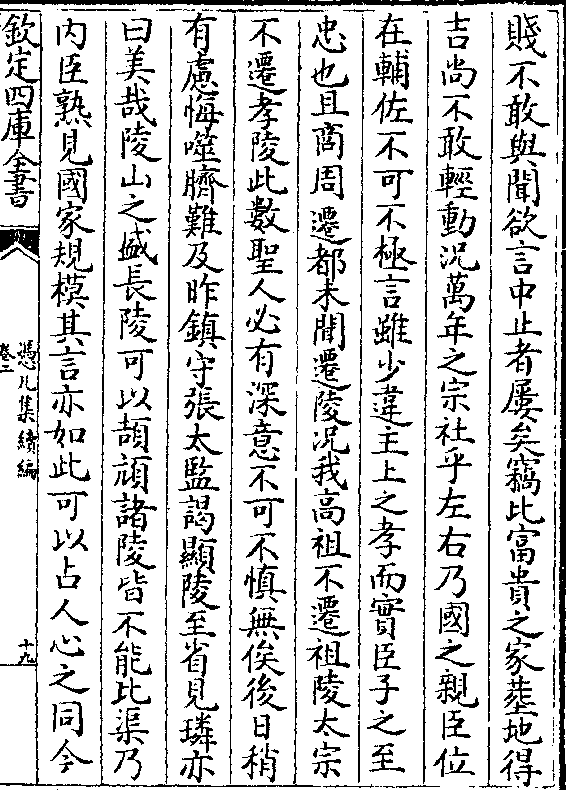 賤不敢與聞欲言中止者屢矣竊比富貴之家塟地得
吉尚不敢輕動況萬年之宗社乎左右乃國之親臣位
在輔佐不可不極言雖少違主上之孝而實臣子之至
忠也且商周遷都未聞遷陵况我高祖不遷祖陵太宗
不遷孝陵此數聖人必有深意不可不慎無俟後日稍
有慮悔噬臍難及昨鎮守張太監謁顯陵至省見璘亦
曰美哉陵山之盛長陵可以頡頏諸陵皆不能比渠乃
内臣熟見國家規模其言亦如此可以占人心之同今
欽定四庫全書
憑几集續編
卷二
十九